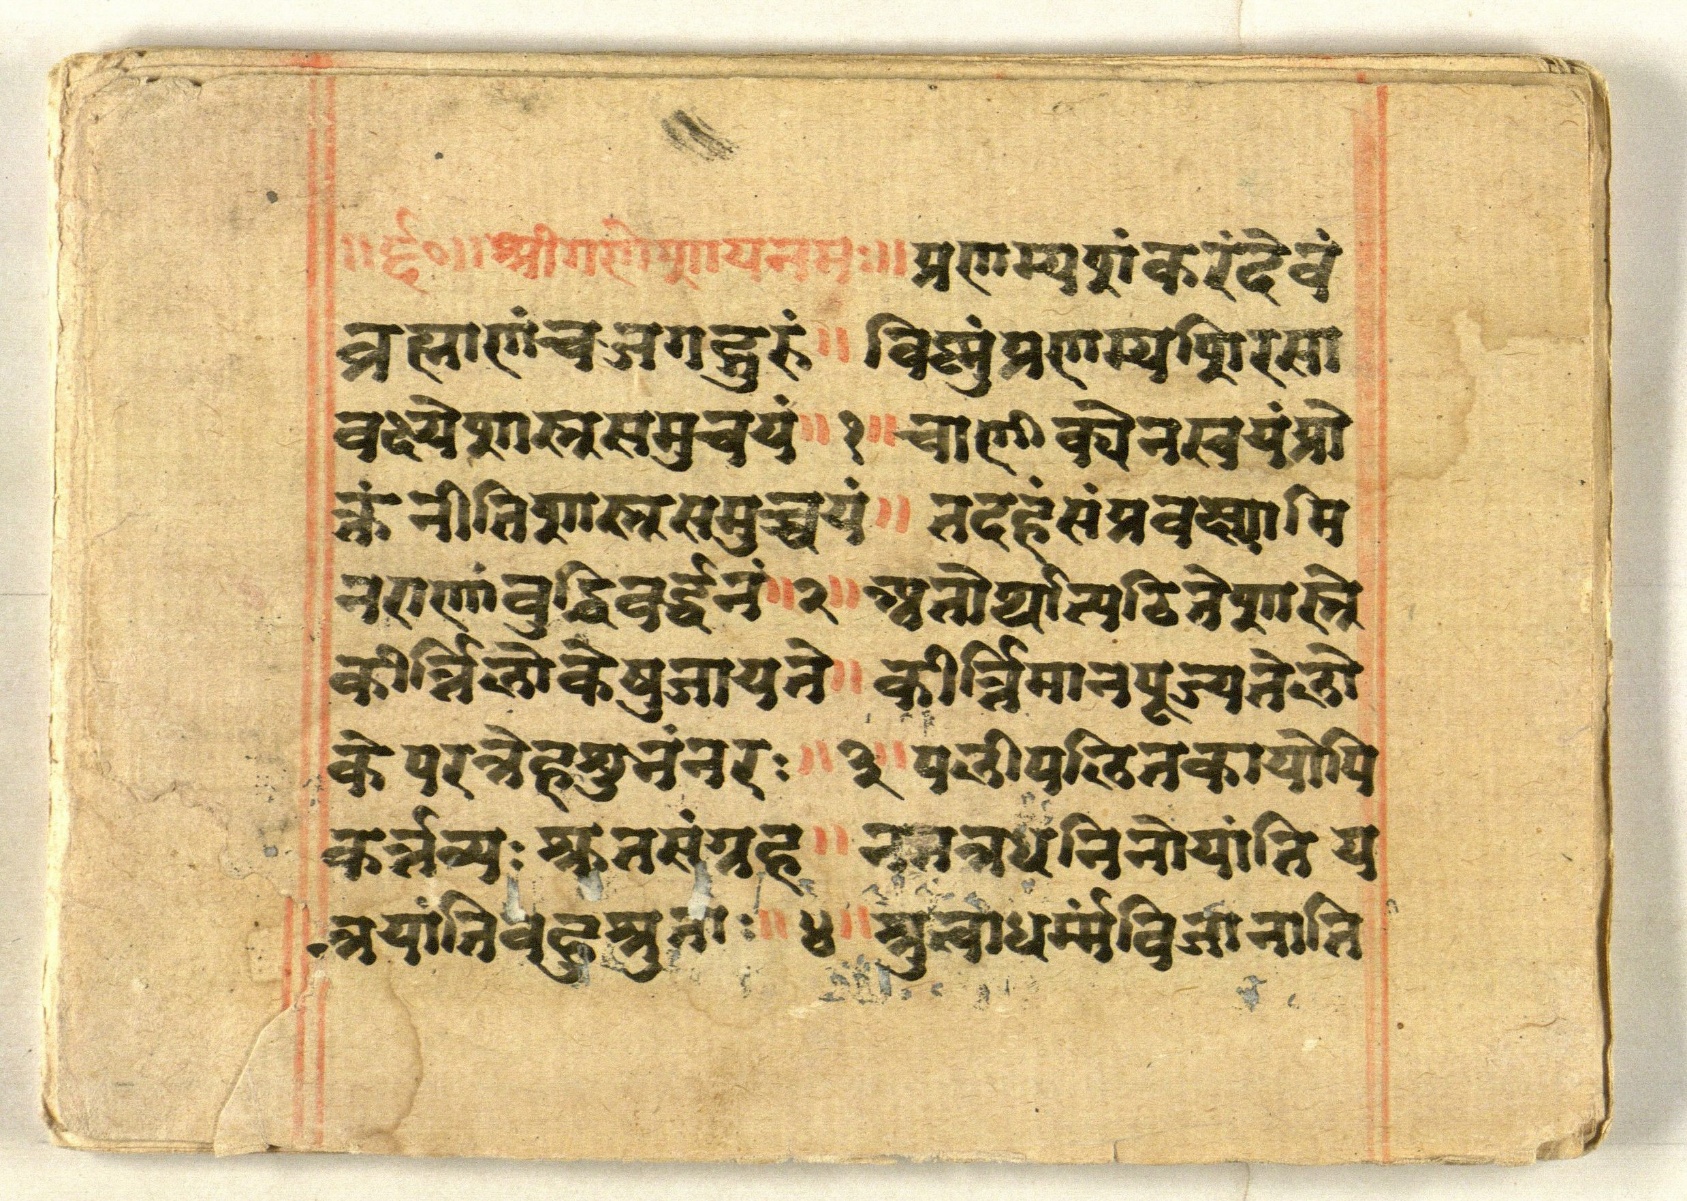 ॥र्द्द०॥श्रीगणेशायनमः॥प्रणम्यशंकरंदेवं
व्रह्माणंचजगद्गुरुं॥विष्णुंप्रणम्यशिरसा
वक्ष्येशास्त्रसमुचयं॥१॥चाणीक्येनस्वयंप्रो
क्तं नीतिशास्त्रसमुच्चयं॥तदहंसंप्रवक्ष्यामि
नराणांवुद्धिवर्द्धनं॥२॥श्वतोर्थात्पठितेशास्त्रे
कीर्त्तिलोकेषुजायते॥कीर्त्तिमानपूज्यतेलो
के परत्रेहशुनंनरः॥३॥पलीपलितकायोपि
कर्त्तव्यः श्रुतसंग्रह॥नतत्रधनिनोयांति य
त्रयांतिवहुश्रुताः॥४॥श्रुत्वाधर्म्मंविजानाति